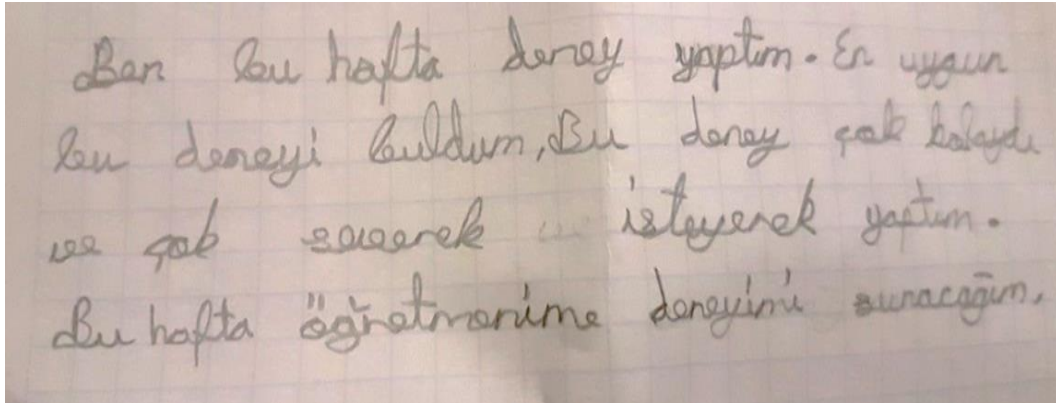 Ben bu hafta deney yaptım. En uygun
bu deneyi buldum, Bu deney çok kolaydı
ve çok severek isteyerek yaptım.
Bu hafta öğretmenime deneyimi sunacağım.